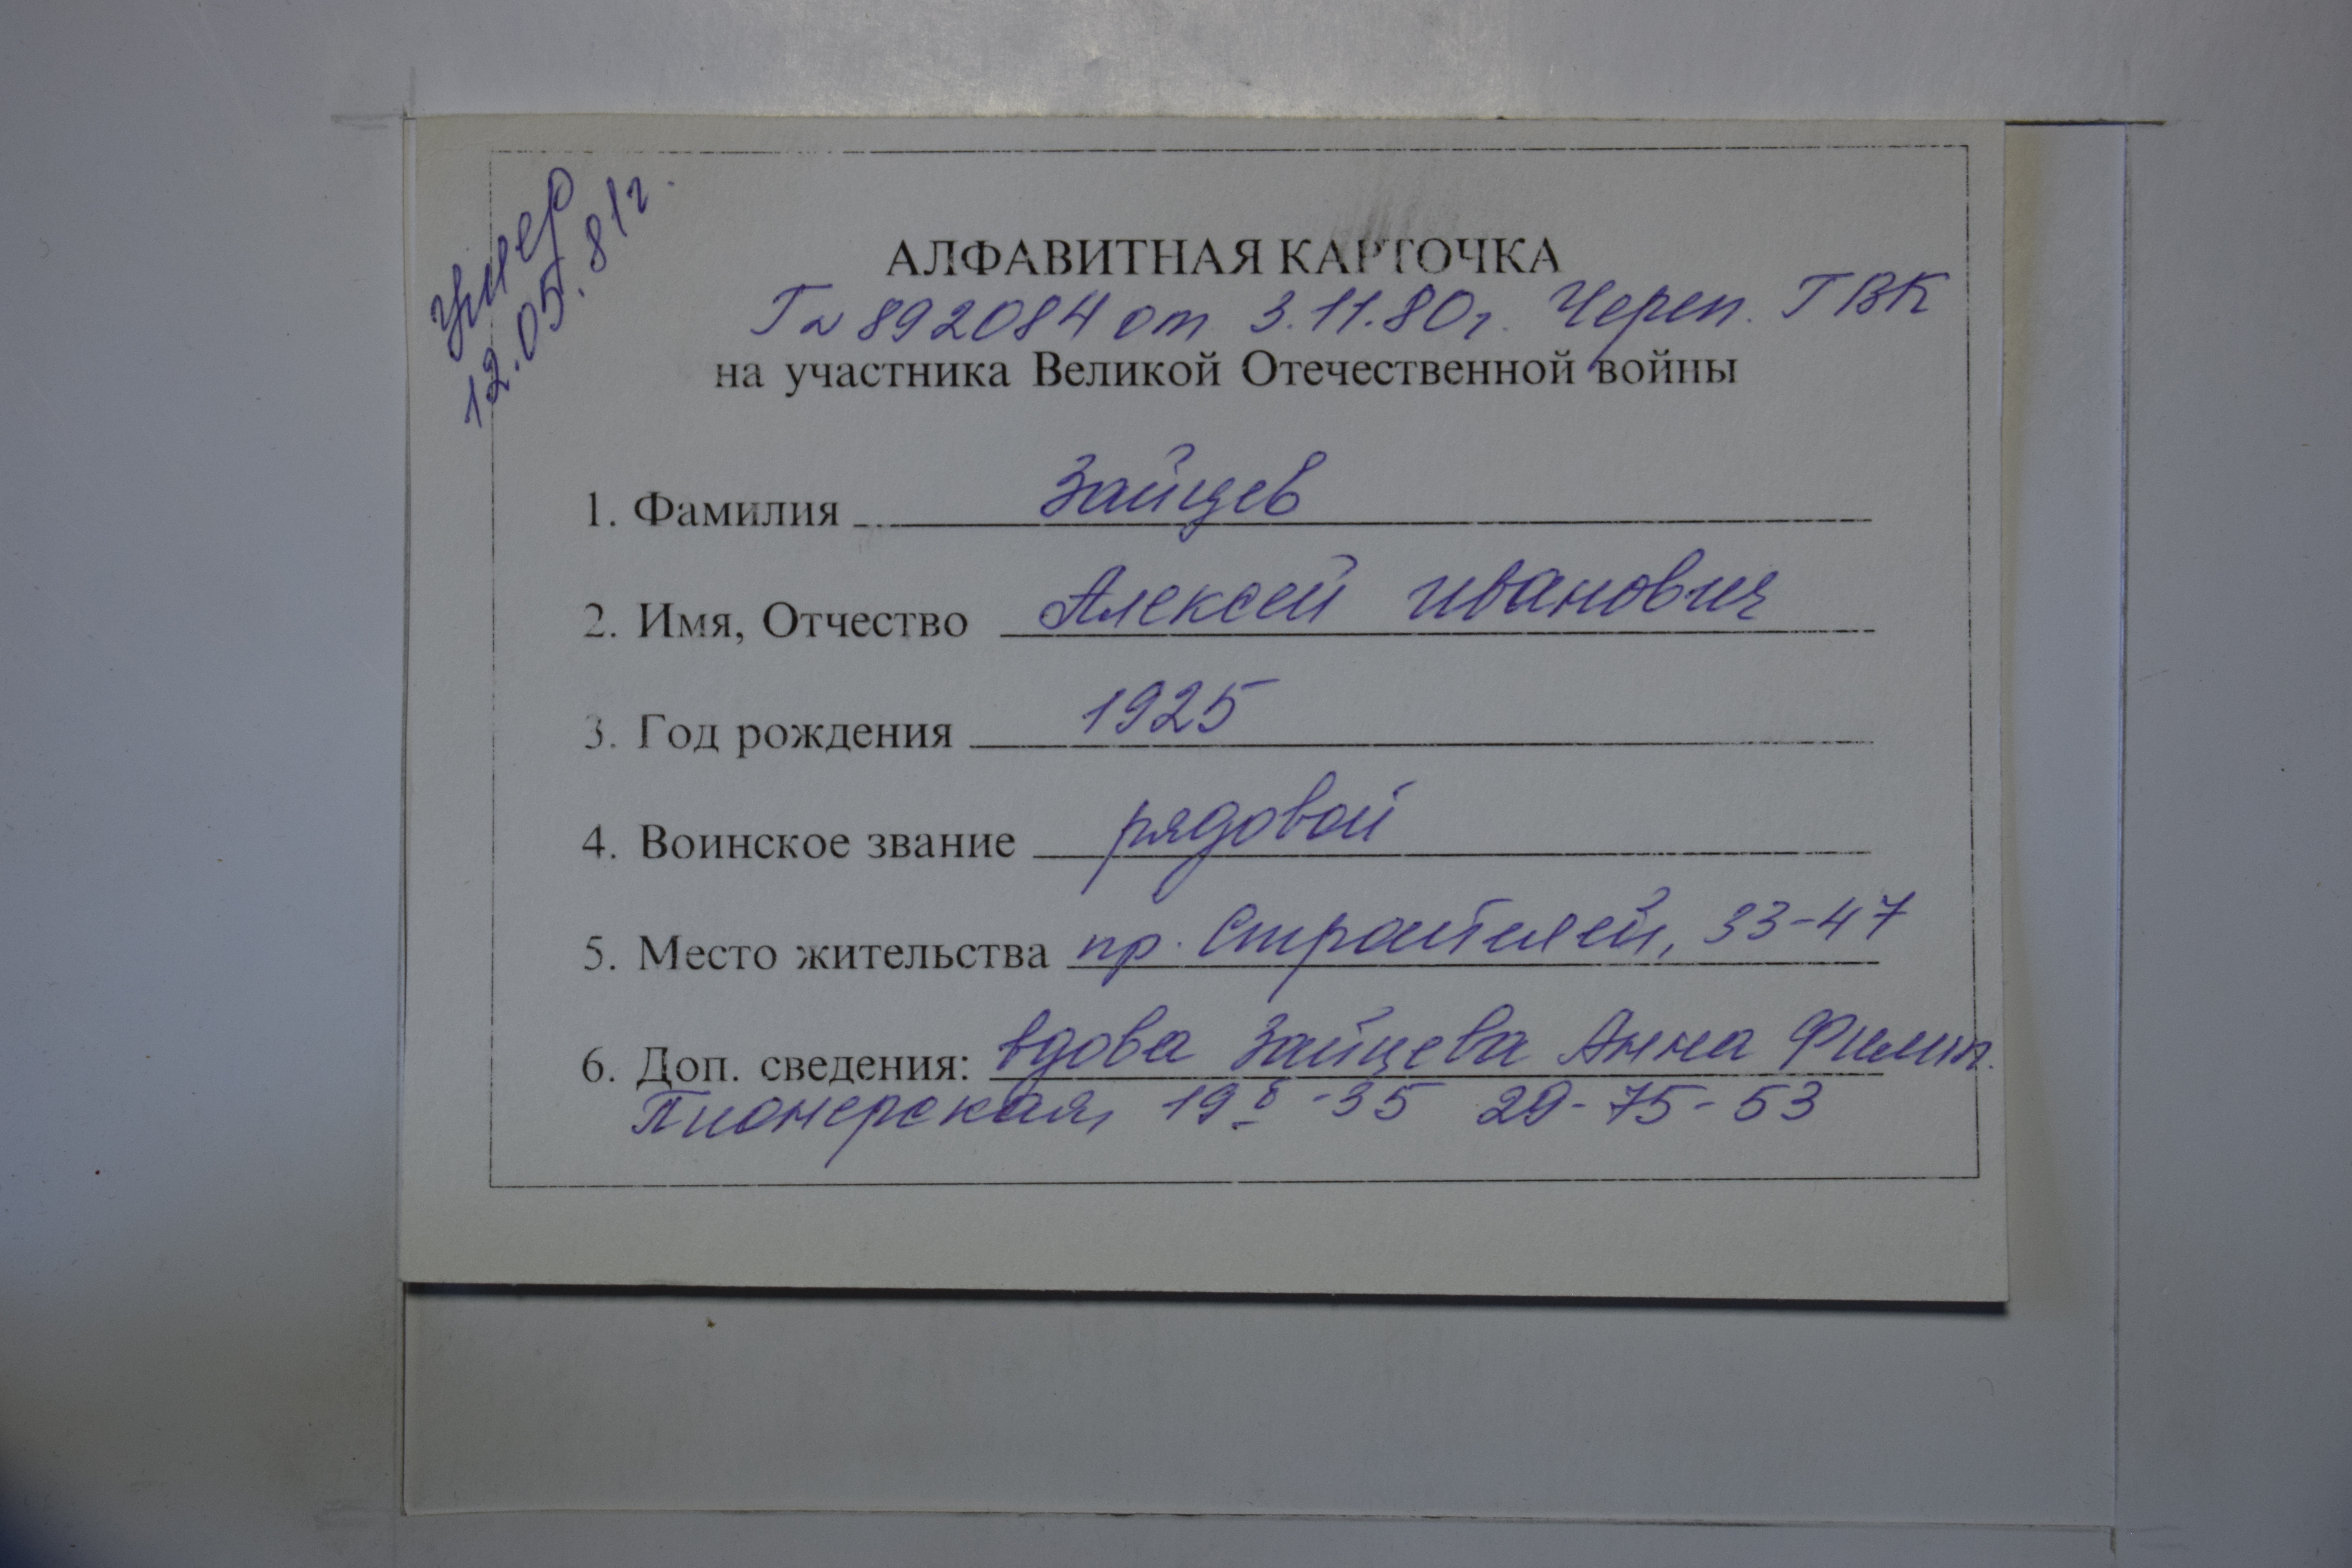 умер
12.05.81г.
АЛФАВИТНАЯ КАРТОЧКА
Г № 892084 от 3.11.80г. Череп. ГВК
на участника Великой Отечественной войны
1. Фамилия Зайцев
2. Имя, Отчество Алексей Иванович
3. Год рождения 1925
4. Воинское звание рядовой
5. Место жительства пр. Строителей, 33-47
6. Доп. сведения: вдова Зайцева Анна Филип.
Пионерская, 19б-35 29-75-53